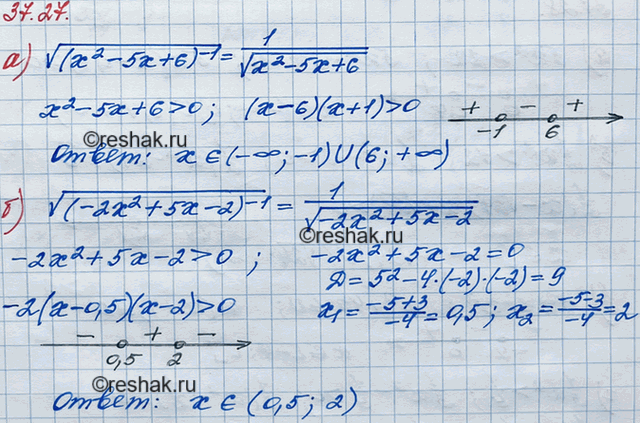 37.27.
а) √(x²-5x+6)⁻¹ = 1/√(x²-5x+6)
x²-5x+6>0; (x-6)(x+1)>0 + - +
-1 6
©reshak.ru
Ответ: x∈(-∞;-1)∪(6;+∞)
б) √(-2x²+5x-2)⁻¹ = 1/√(-2x²+5x-2)
©reshak.ru
-2x²+5x-2>0; -2x²+5x-2=0
D=5²-4·(-2)·(-2)=9
-2(x-0,5)(x-2)>0 x₁=(-5+3)/-4=0,5; x₂=(-5-3)/-4=2
- + -
0,5 2
©reshak.ru
Ответ: x∈(0,5; 2)